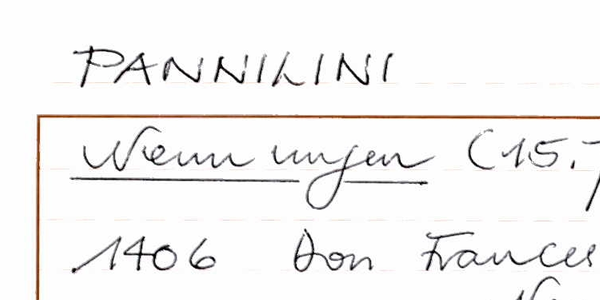 PANNILINI
Nennungen (15.
1406 Don Frances